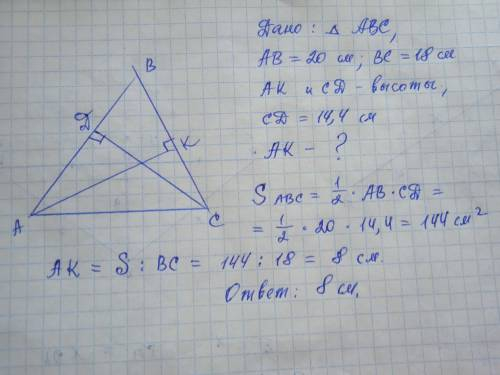 Дано: Δ ABC,
AB = 20 см; BC = 18 см
AK и CД - высоты,
CД = 14,4 см
AK - ?
B
Д
K
A
C
S ABC = 1/2 · AB · CД =
= 1/2 · 20 · 14,4 = 144 см²
AK = S : BC = 144 : 18 = 8 см.
Ответ: 8 см.